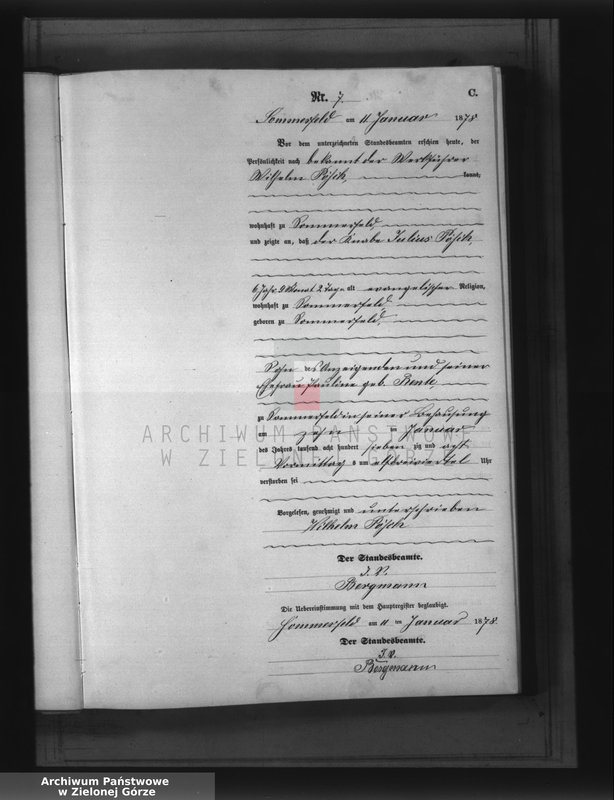 Nr. 7.
C.
Sommerfeld am 11 Januar 1878
Vor dem unterzeichneten Standesbeamten erschien heute, der
Persönlichkeit nach bekannt der Werkführer
Wilhelm Pösch, kannt,
wohnhaft zu Sommerfeld,
und zeigte an, daß der Knabe Julius Pösch,
6 Jahr Monat 2 Tage alt evangelischer Religion,
wohnhaft zu Sommerfeld
geboren zu Sommerfeld,
Sohn des Anzeigenden und seiner
Ehefrau Pauline geb.
zu Sommerfeld in seiner Behausung
am zehn ten Januar
des Jahres tausend acht hundert sieben zig und acht
Vormittag s um elfdreiviertel Uhr
verstorben sei
Vorgelesen, genehmigt und unterschrieben
Wilhelm Pösch
Der Standesbeamte.
I. V.
Bergmann
Die Uebereinstimmung mit dem Hauptregister beglaubigt.
Sommerfeld am 11 ten Januar 1878.
Der Standesbeamte.
I. V.
Bergmann
ARCHIWUM PAŃSTWOWE
W ZIELONEJ GÓRZE
Archiwum Państwowe
w Zielonej Górze